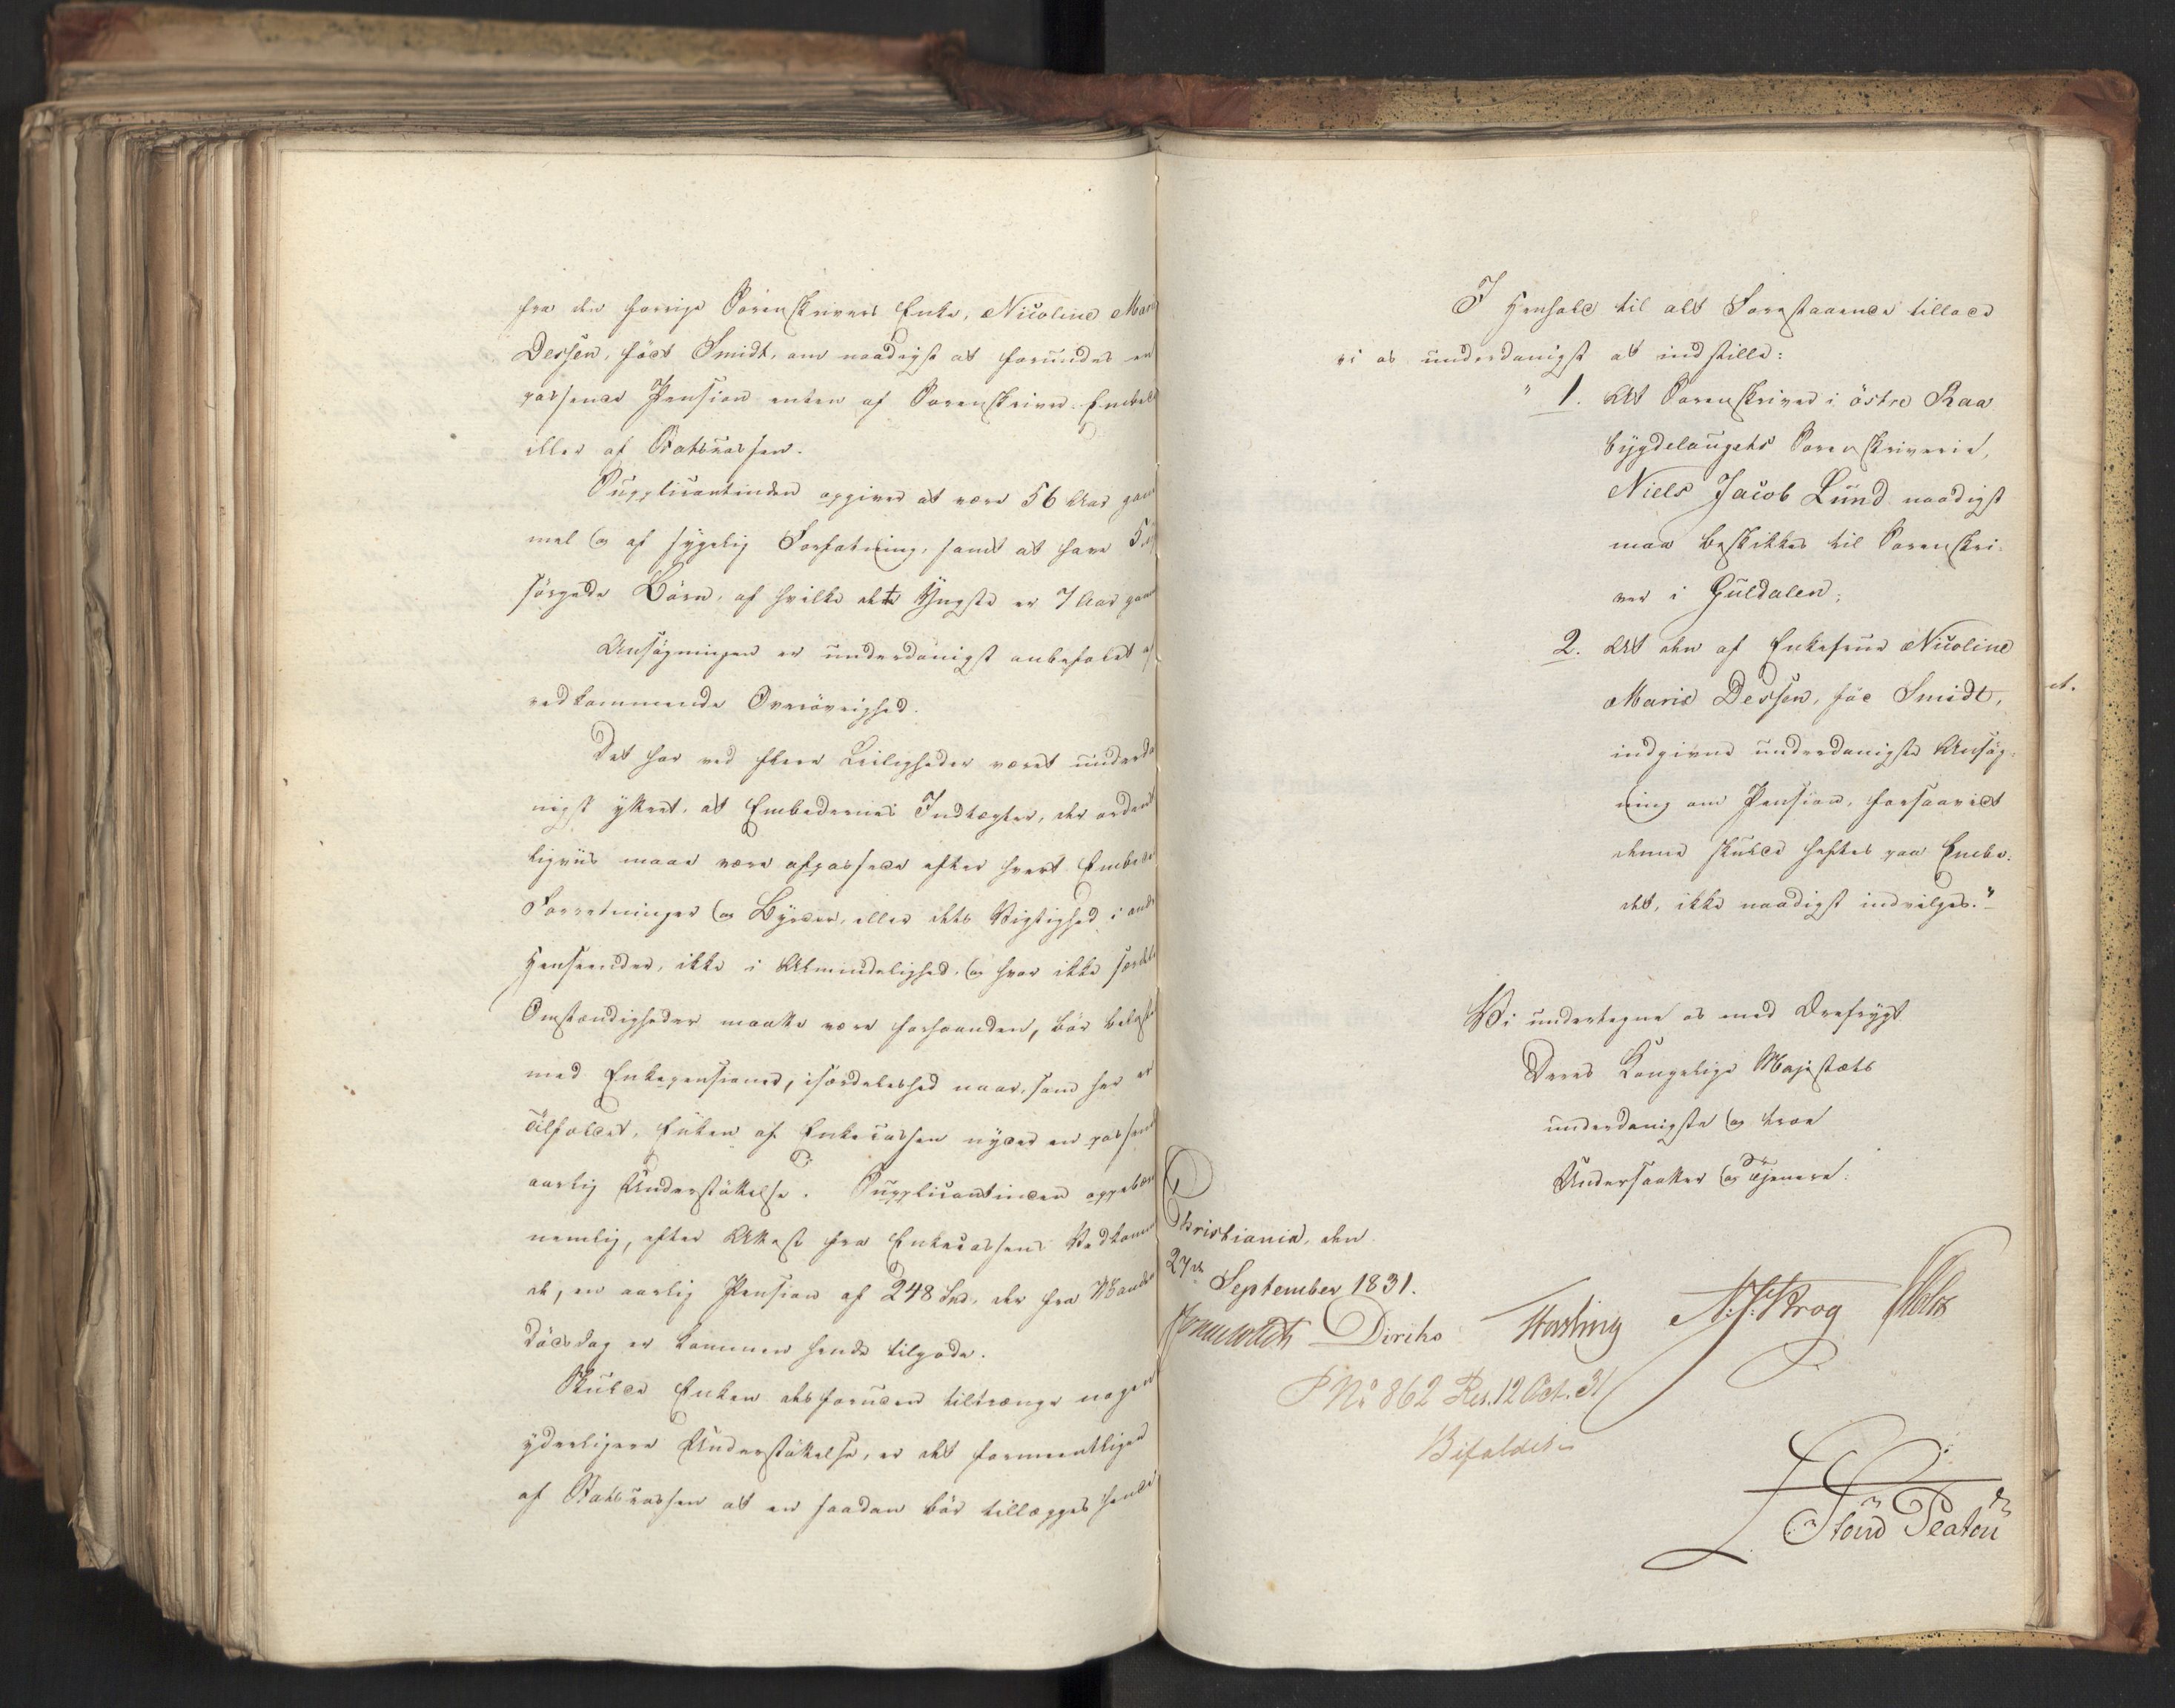 fra den forrige Sorenskrivers Enke, Nicoline Mari
Dessen, född Smidt, om naadigst at forundes en
passende Pension enten af Sorenskriver-Embed
eller af Statskassen.
Supplicantinden opgiver at være 56 Aar gam
mel og af sygelig Forfatning, samt at have 5
sörgede Börn, af hvilke det Yngste er 7 Aar gam
Ansögningen er underdanigst anbefalet af
vedkommende Overövrighed.
Det har ved flere Leiligheder været underda
nigst yttret, at Embedernes Indtægter, der ordent
ligviis maae være afpassede efter hvert Embedes
Forretninger og Byrder, eller dets Vigtighed i andre
Henseender, ikke i Almindelighed, og hvor ikke særdeles
Omstændigheder maatte være forhaanden, bör belastes
med Enkepensioner, isærdeleshed naar, som her er
Tilfældet, Enken af Enkecassen nyder en passende
aarlig Understöttelse. Supplicantinden oppebær
nemlig, efter Attest fra Enkecassens Vedkommen
de, en aarlig Pension af 248 Spd, der fra Mandens
Dödsdag er kommen hende tilgode.
Skulde Enken desforuden tiltrænge nogen
yderligere Understöttelse, er det formeentligen
af Statskassen at en saadan bör tillægges hende
I Henhold til alt Forestaaende tillade
vi os underdanigst at indstille:
" 1. At Sorenskriver i östre Raa
bygdelaugets Sorenskriverie,
Niels Jacob Lund naadigst
maa beskikkes til Sorenskri-
ver i Guldalen;
2. At den af Enkefrue Nicoline
Marie Dessen, föd Smidt,
indgivne underdanigste Ansög-
ning om Pension, forsaavidt
denne skulde heftes paa Embe-
det, ikke naadigst indvilges."
Vi undertegne os med Ærefrygt
Deres Kongelige Majestæts
underdanigste og troe
Undersaatter og Tjenere.
Christiania, den
27de September 1831.
Sommerfeldt Diriks Fasting N. J. Krog Holst
P No 862 Res. 12 Oct. 31
Bifaldes